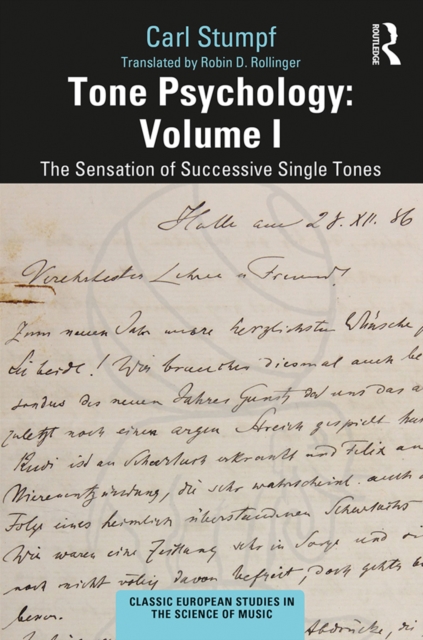 Carl Stumpf
Translated by Robin D. Rollinger
ROUTLEDGE
Tone Psychology:
Volume I
The Sensation of Successive Single Tones
Halle am 28. XII. 86
Verehrtester Lehrer u Freund!
Zum neuen Jahr unsre herzlichsten Wünsche f
Sie beide! Wir brauchen diesmal auch be
sonders des neuen Jahres Gunst, da uns das a
zuletzt noch einen argen Streich gespielt hat
Rudi ist an Scharlach erkrankt und Felix an
Nierenentzündung, die sehr wahrscheinl. auch d
Folge eines heimlich überstandenen Scharlachs
Wir waren eine Zeitlang sehr in Sorge und si
noch nicht völlig davon befreit, doch geht's b
besser.
CLASSIC EUROPEAN STUDIES IN
THE SCIENCE OF MUSIC
Abdrücke, die